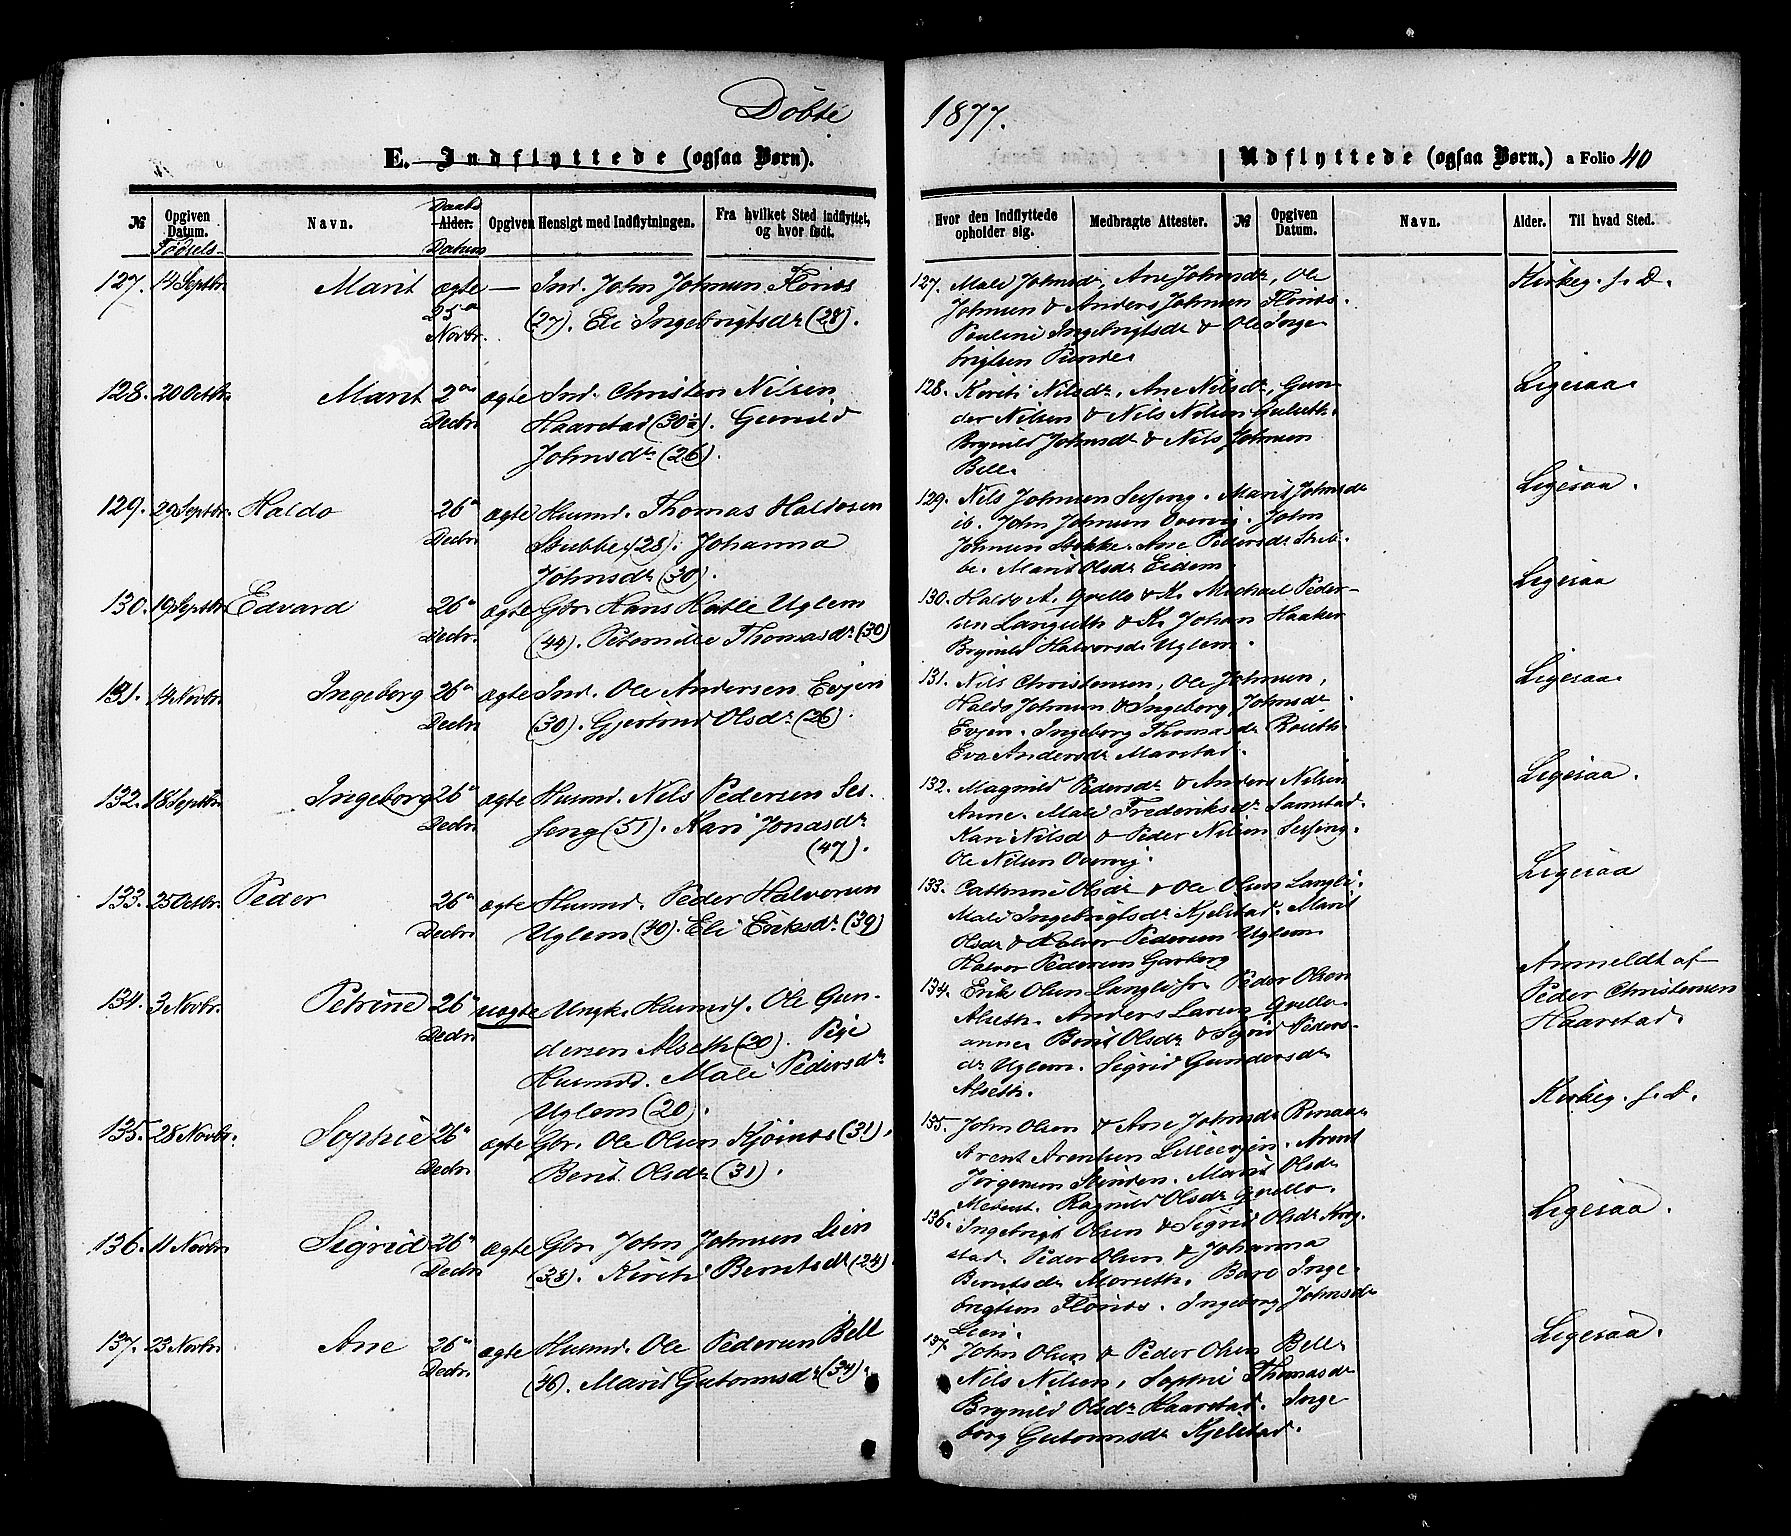 Döbte
1877.
E. Indflyttede (ogsaa Børn).
Udflyttede (ogsaa Børn.) a Folio 40
№ Opgiven Datum. Fødsels- Navn. Daabs Alder. Datum Opgiven Hensigt med Indflytningen. Fra hvilket Sted indflyttet, og hvor født.
Hvor den Indflyttede opholder sig. Medbragte Attester. № Opgiven Datum. Navn. Alder. Til hvad Sted.
127. 14 Septbr. Marit ægte — Ind. John Johnsen Flönæs
25de (27). Eli Ingebrigtsdr (28).
Novbr.
128. 20 Octbr. Marit 2den ægte Ind. Christen Nilsen
Decbr. Haarstad (30½). Gunild
Johnsdr (26).
129. 29 Septbr. Haldo 26de ægte Husmd. Thomas Haldosen
Decbr. Stubbe (28). Johanna
Johnsdr (30).
130. 19 Septbr. Edvard 26de ægte Gbr. Hans Hatle Uglem
Decbr. (44). Peternille Thomasdr (30)
131. 14 Novbr. Ingeborg 26de ægte Ind. Ole Andersen Evjen
Decbr. (30). Gjertrud Olsdr (26).
132. 18 Septbr. Ingeborg 26de ægte Husmd. Nils Pedersen Ses-
Decbr. seng (51). Kari Jonasdr
(47).
133. 25 Octbr. Peder 26de ægte Husmd. Peder Halvorsen
Decbr. Uglem (40). Eli Eriksdr (39)
134. 3 Novbr. Petrine 26de uægte Ungk. Husmds. Ole Gun-
Decbr. dersen Alseth (20). Pige
Husmd. Mali Pedersdr
Uglem (20).
135. 28 Novbr. Sophie 26de ægte Gbr. Ole Olsen Kjösnæs (31).
Decbr. Berit Olsdr (31).
136. 11 Novbr. Sigrid 26de ægte Gbr. John Johnsen Lien
Decbr. (38). Kirsti Berntsdr (24).
137. 23 Novbr. Ane 26de ægte Husmd. Ole Pedersen Bell
Decbr. (46). Marit Guttormsdr (34).
127. Mali Johnsdr, Ane Johnsdr, Ole
Johnsen & Anders Johnsen Flönæs.
Pauline Ingebrigtsdr & Ole Inge-
brigtsen
Kirkeg. s. D.
128. Kirsti Nilsdr, Ane Nilsdr, Gun-
der Nilsen & Nils Nilsen
Brynild Johnsdr & Nils Johnsen
Bell.
Ligesaa.
129. Nils Johnsen Sesseng. Marit Johnsdr
ib. John Johnsen Overvig. John
Johnsen Stokke. Ane Pedersdr Stub-
be. Marit Olsdr Eidem.
Ligesaa.
130. Haldo A. Grello & K. Michael Peder-
sen Langseth & K. Johan Haaker
Brynild Halvorsdr Uglem.
Ligesaa
131. Nils Christensen, Ole Johnsen,
Haldo Johnsen & Ingeborg Johnsdr
Evjen. Ingeborg Thomasdr Roseth.
Eva Andersdr Marstad.
Ligesaa.
132. Magnild Pedersdr & Anders Nilsen
Anne. Mali Frederiksdr Samstad.
Kari Nilsdr & Peder Nilsen Sesseng.
Ole Nilsen Overvig.
Ligesaa.
133. Cathrine Olsdr & Ole Olsen Langli.
Mali Ingebrigtsdr Kjelstad. Marit
Olsdr & Halvor Pedersen Uglem.
Halvor Pedersen Garberg
Ligesaa
134. Erik Olsen Langli. Peder Olsen
Alseth. Anders Larsen Grello-
anne. Berit Olsdr & Sigrid Peders-
dr Uglem. Sigrid Gundersdr
Alseth.
Anmeldt af
Peder Christensen
Haarstad.
135. John Olsen & Ane Johnsdr Renaa.
Arent Arentsen Lilleevjen. Arent
Jörgensen Kinden. Marit Olsdr
Ragnild Olsdr Grello.
Kirkeg. s. D.
136. Ingebrigt Olsen & Sigrid Olsdr Krog-
stad. Peder Olsen & Johanna
Berntsdr Moseth. Baro Inge-
brigtsen Flönæs. Ingeborg Johnsdr
Lien.
Ligesaa.
137. John Olsen & Peder Olsen Bell.
Nils Nilsen, Sophie Thomasdr
Brynild Olsdr Haarstad. Inge-
borg Guttormsdr Kjelstad.
Ligesaa.